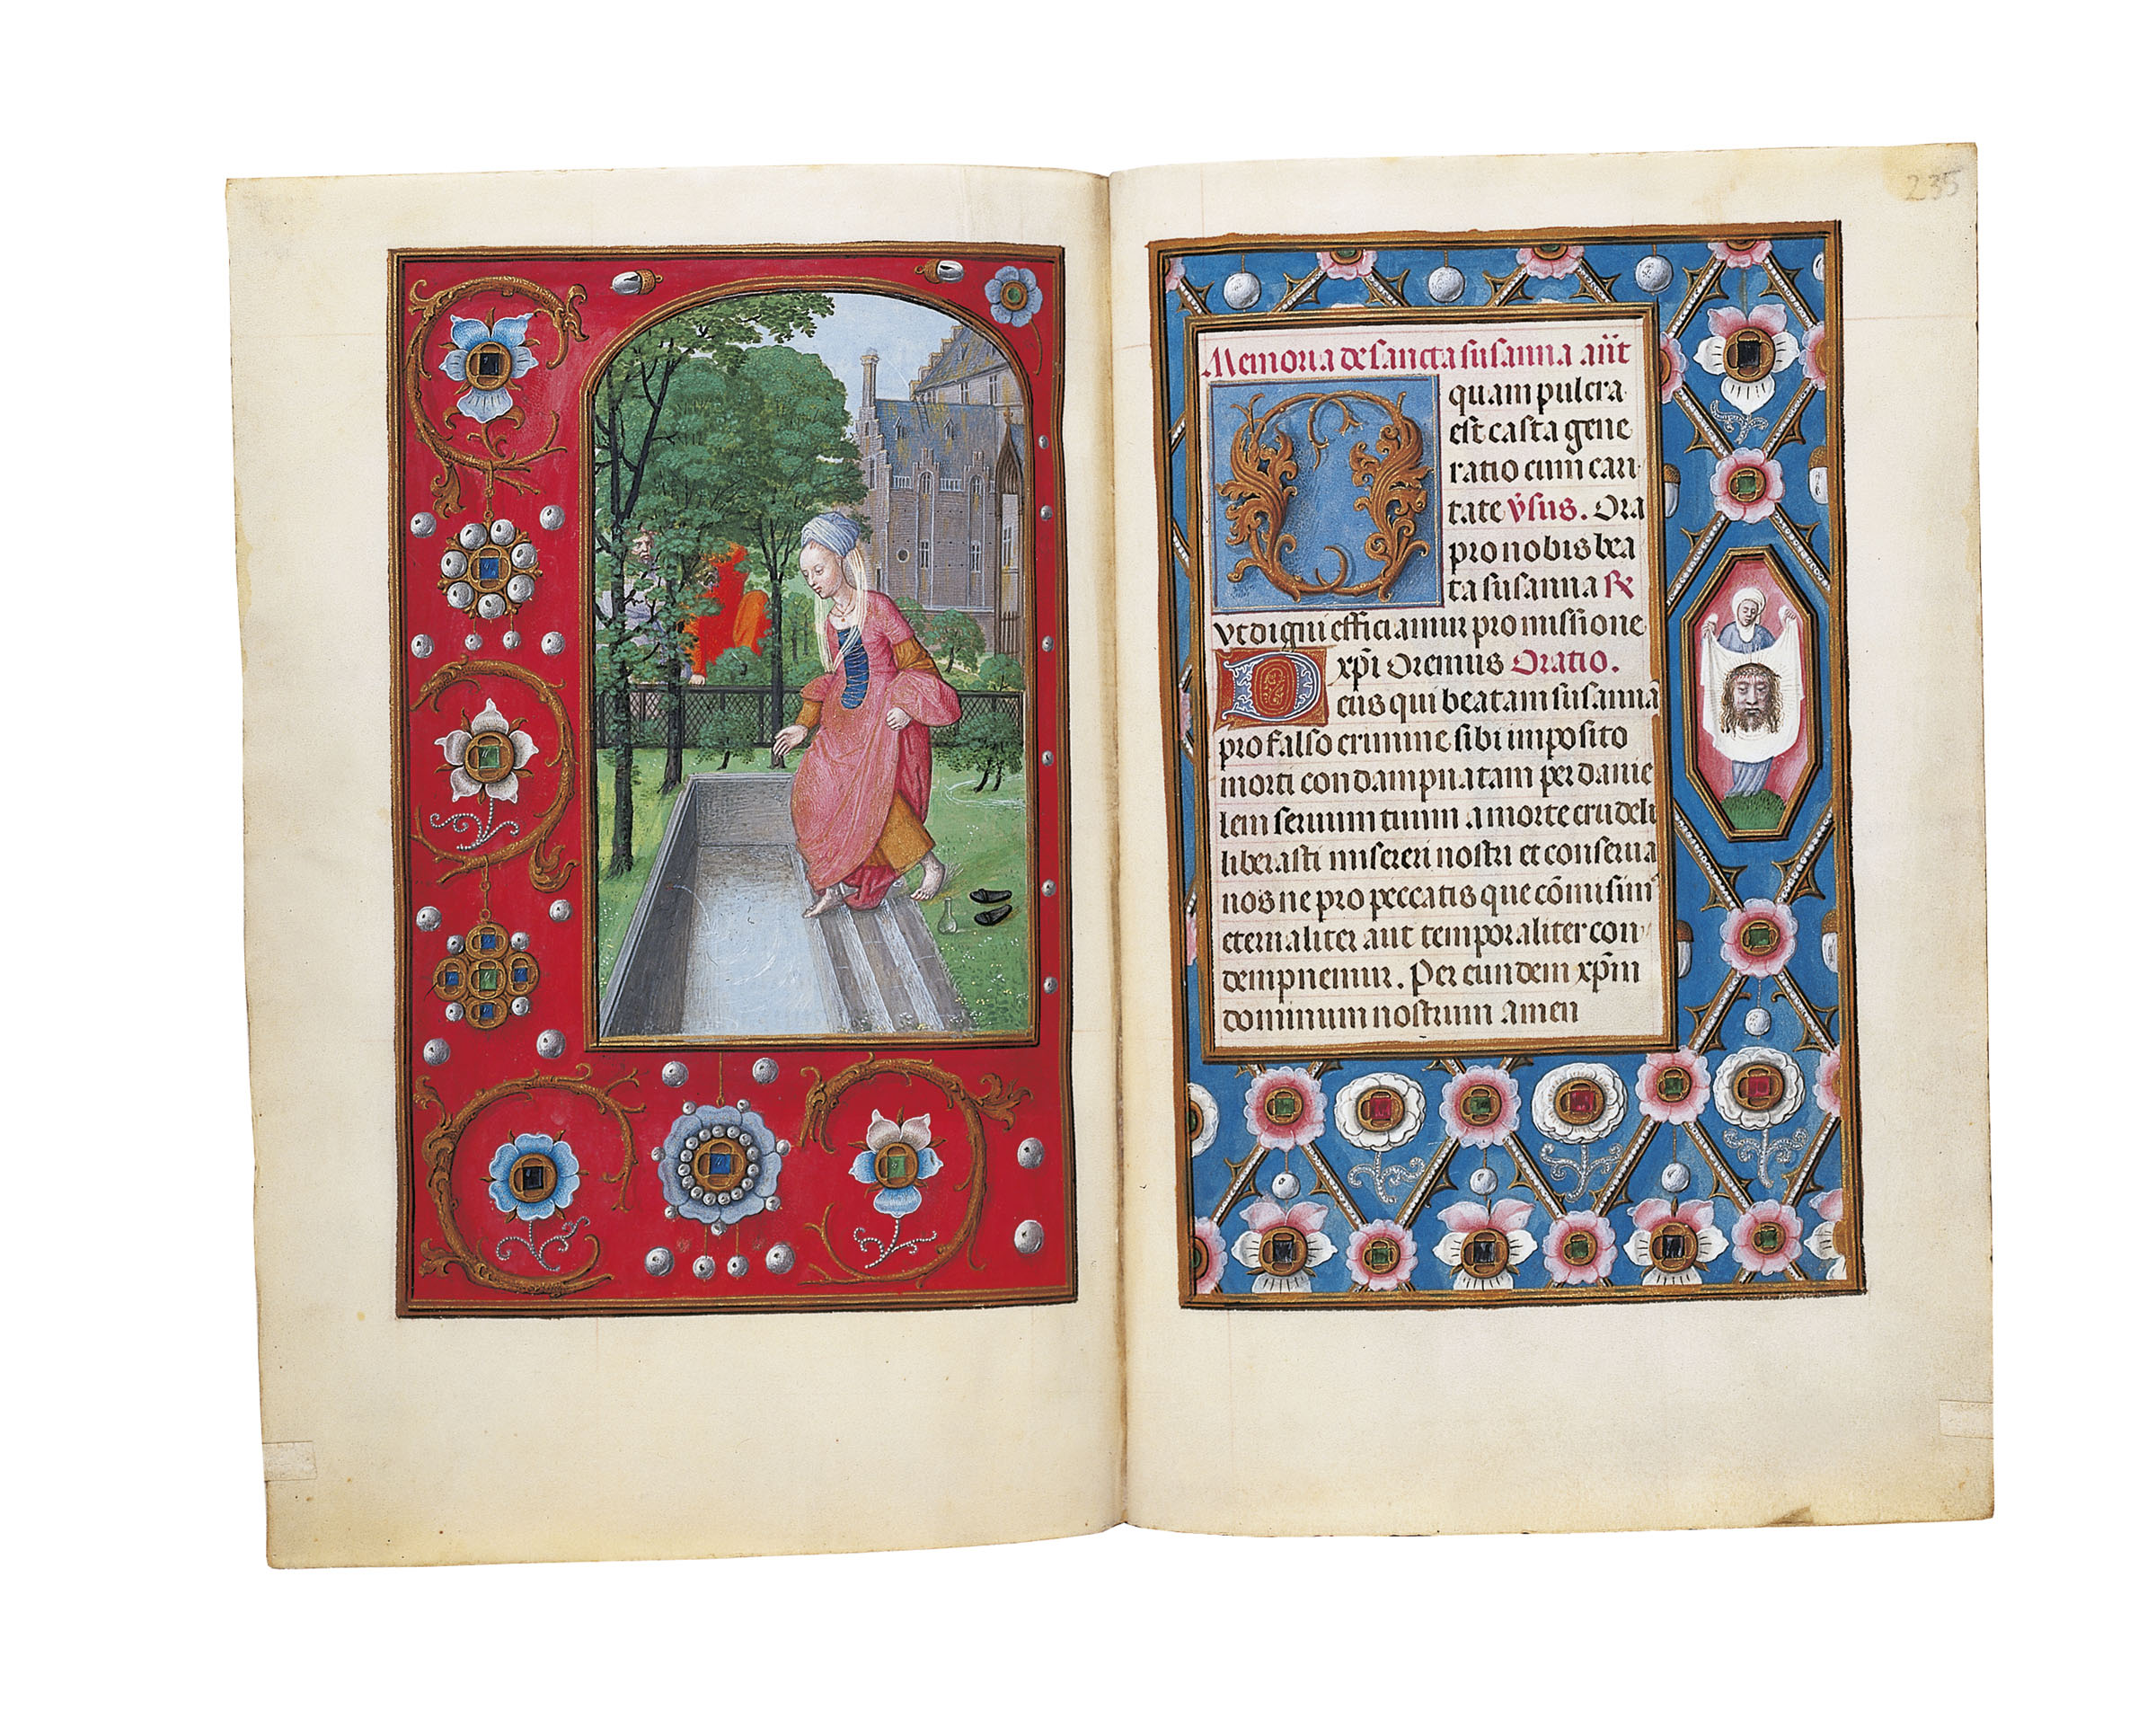 235
Memoria de sancta susanna añt
O quam pulcra
est casta gene
ratio cum cari
tate v̉sus. Ora
pro nobis bea
ta susanna ℟
vt digni efficiamur promissione
xp̄i Oremus Oratio.
Deus qui beatam susanna
pro falso crimine sibi imposito
morti condampnatam per danie
lem seruum tuum a morte crudeli
liberasti misereri nostri et conserua
nos ne pro peccatis que cōmisim⁹
eternaliter aut temporaliter con
dempnemur. Per eundem xp̄m
dominum nostrum amen